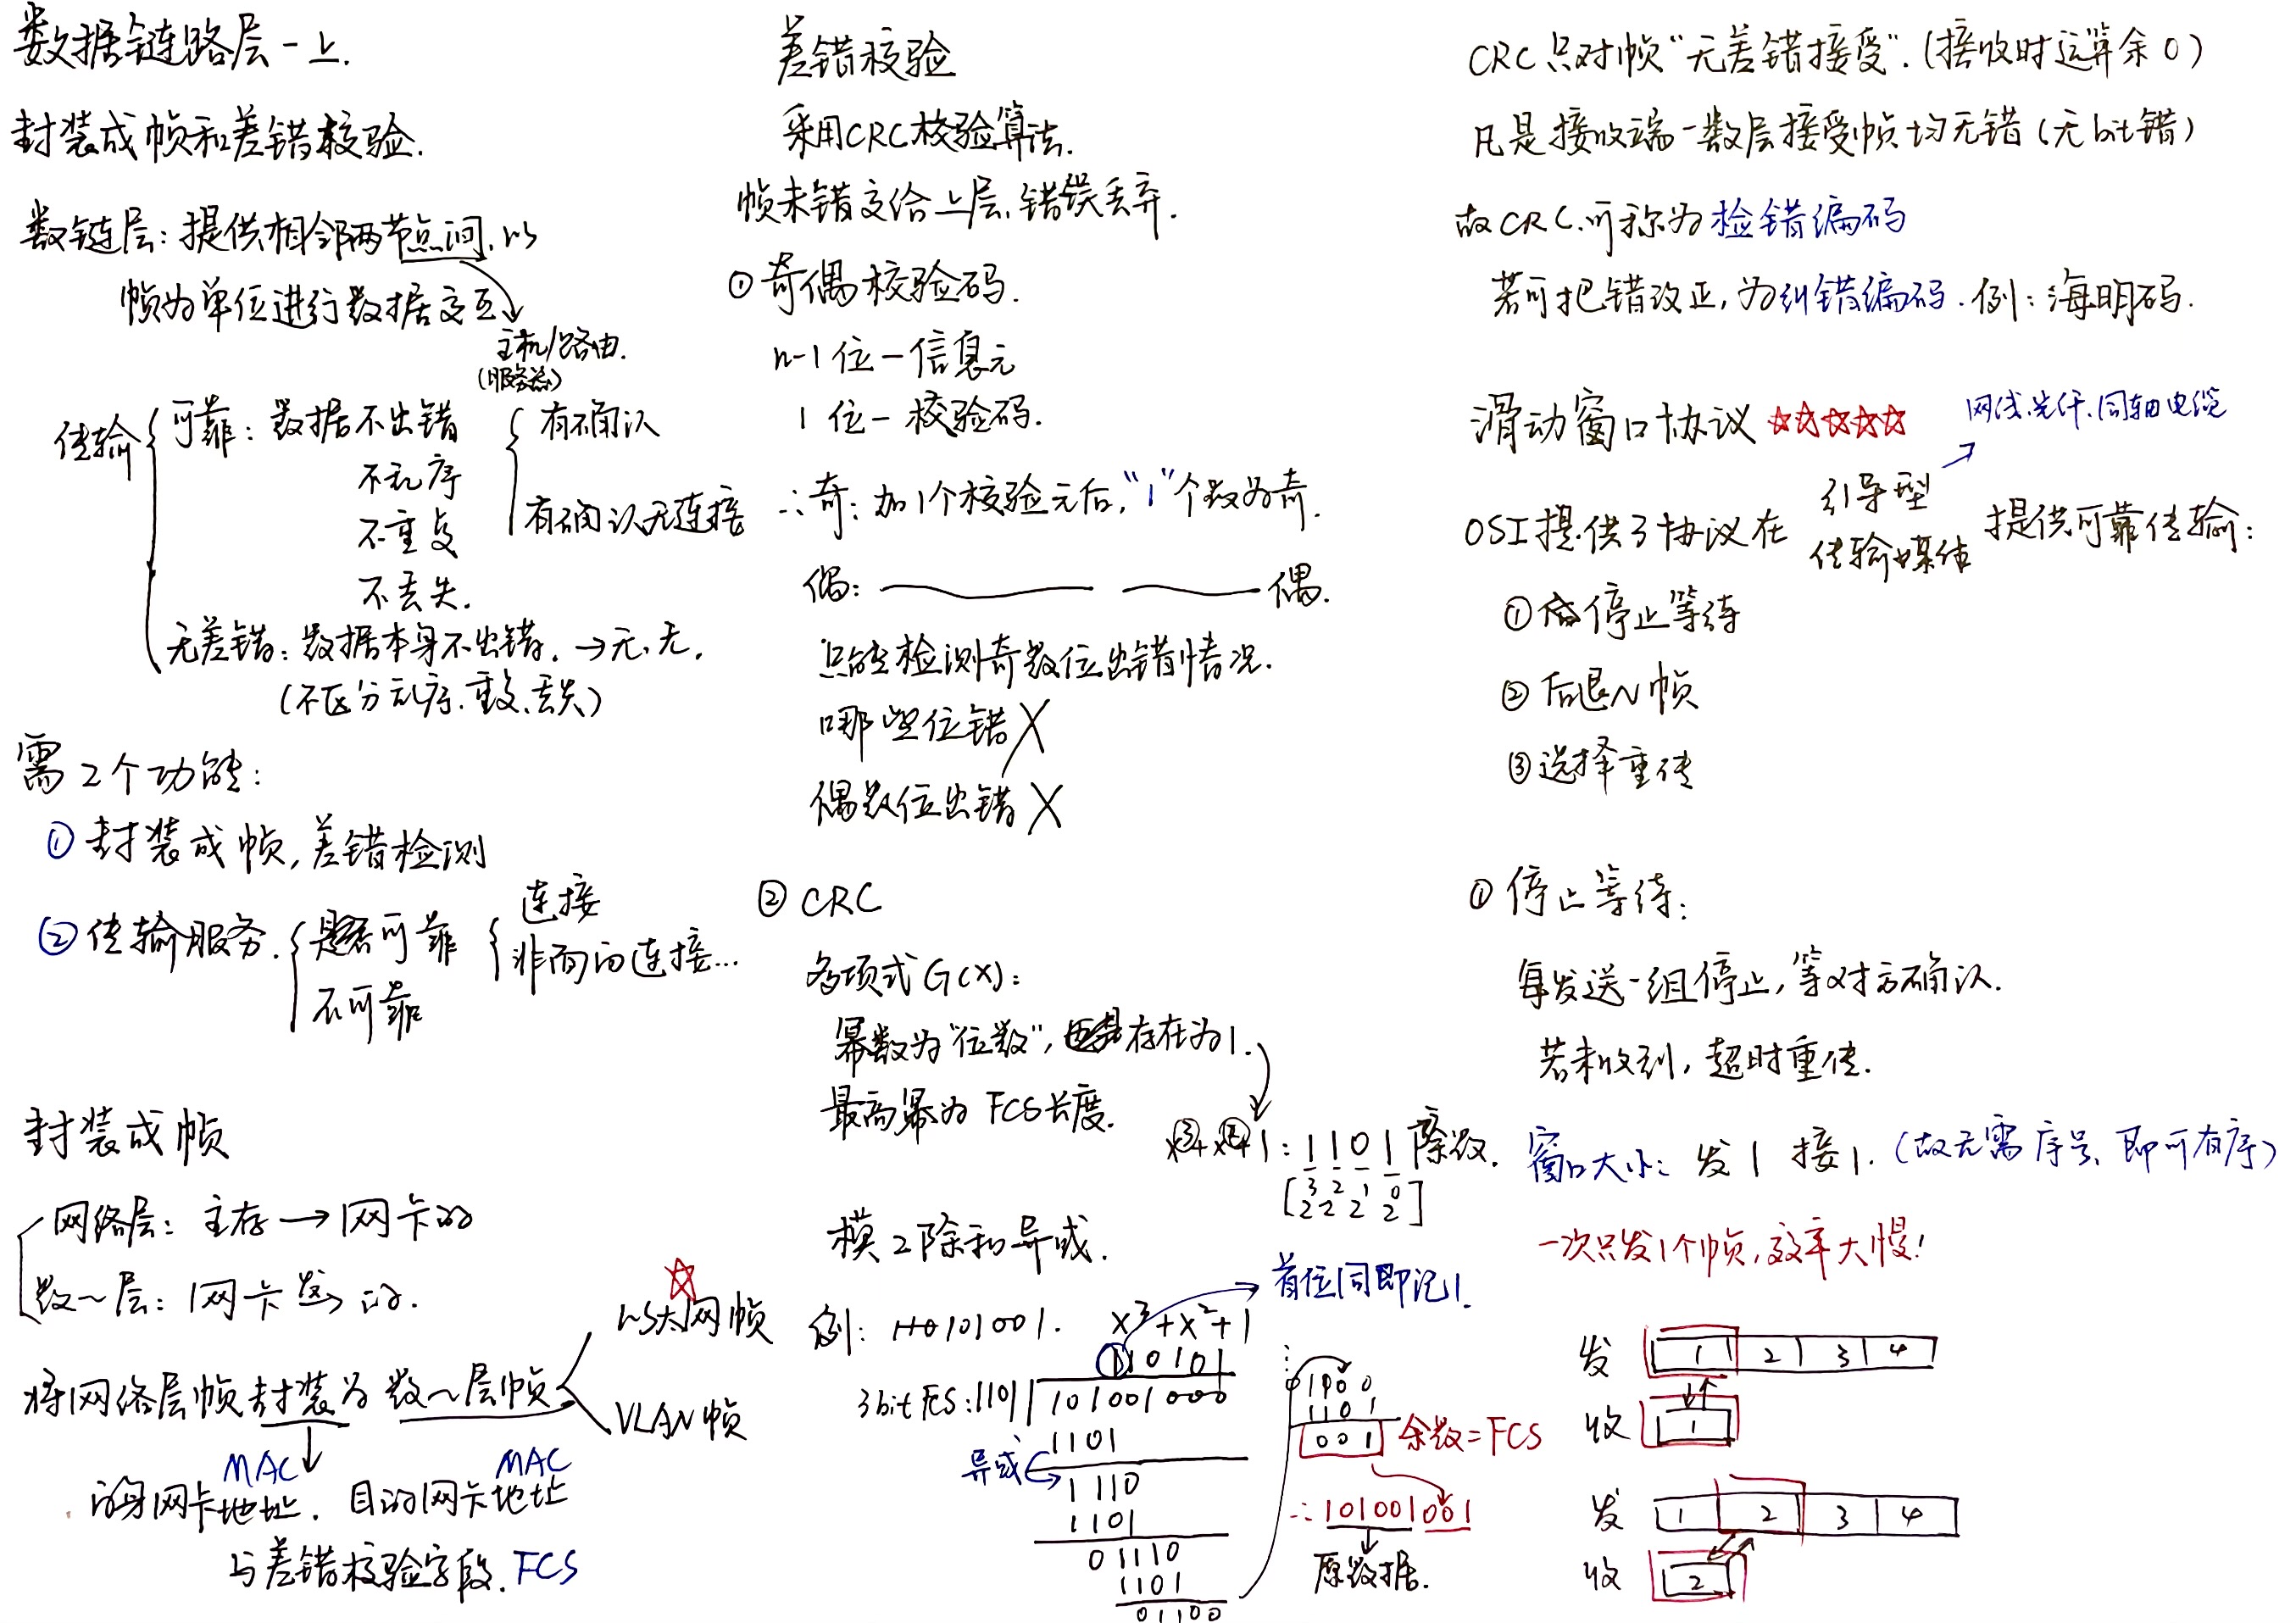 数据链路层-上.
封装成帧和差错校验.
数链层: 提供相邻两节点间,以
帧为单位进行数据交互
主机/路由.
(服务器)
传输
可靠: 数据不出错
不乱序
不重复
不丢失.
有确认
有确认无连接
无差错: 数据本身不出错. →无.无.
(不区分乱序.重复.丢失)
需2个功能:
① 封装成帧, 差错检测
② 传输服务.
是否可靠
不可靠
连接
非面向连接...
封装成帧
网络层: 主存→网卡的
数~层: 网卡发的.
将网络层帧封装为数~层帧
☆
以太网帧
VLAN帧
MAC
MAC
网卡地址. 目的网卡地址
与差错校验字段. FCS
差错校验
采用CRC校验算法.
帧未错交给上层.错误丢弃.
① 奇偶校验码.
n-1位-信息元
1位-校验码.
∴奇: 加1个校验元后,"1"个数为奇.
偶: —— ——偶.
只能检测奇数位出错情况.
哪些位错 X
偶数位出错 X
② CRC
多项式G(X):
幂数为"位数", 存在为1.
最高幂为FCS长度.
x³+x²+1: 1101 除数.
3 2 1 0
[2 2 2 2]
模2除和异或.
首位同即记1.
例: 101001. x³+x²+1
110101
3bit FCS: 1101 101001000
1101
异或
1110
1101
01110
1101
01100
01100
1101
001 余数=FCS
∴ 101001001
原数据.
CRC只对帧"无差错接受".(接收时运算余0)
凡是接收端-数层接受帧均无错(无bit错)
故CRC.可称为检错编码
若可把错改正,为纠错编码.例: 海明码.
滑动窗口协议 ☆☆☆☆☆
网线.光纤.同轴电缆
OSI提供3协议在引导型传输媒体提供可靠传输:
① 停止等待
② 后退N帧
③ 选择重传
① 停止等待:
每发送一组停止,等对方确认.
若未收到, 超时重传.
窗口大小: 发1 接1. (故无需序号、即可有序)
一次只发1个帧,效率大慢!
发 1 2 3 4
收 1
发 1 2 3 4
收 2